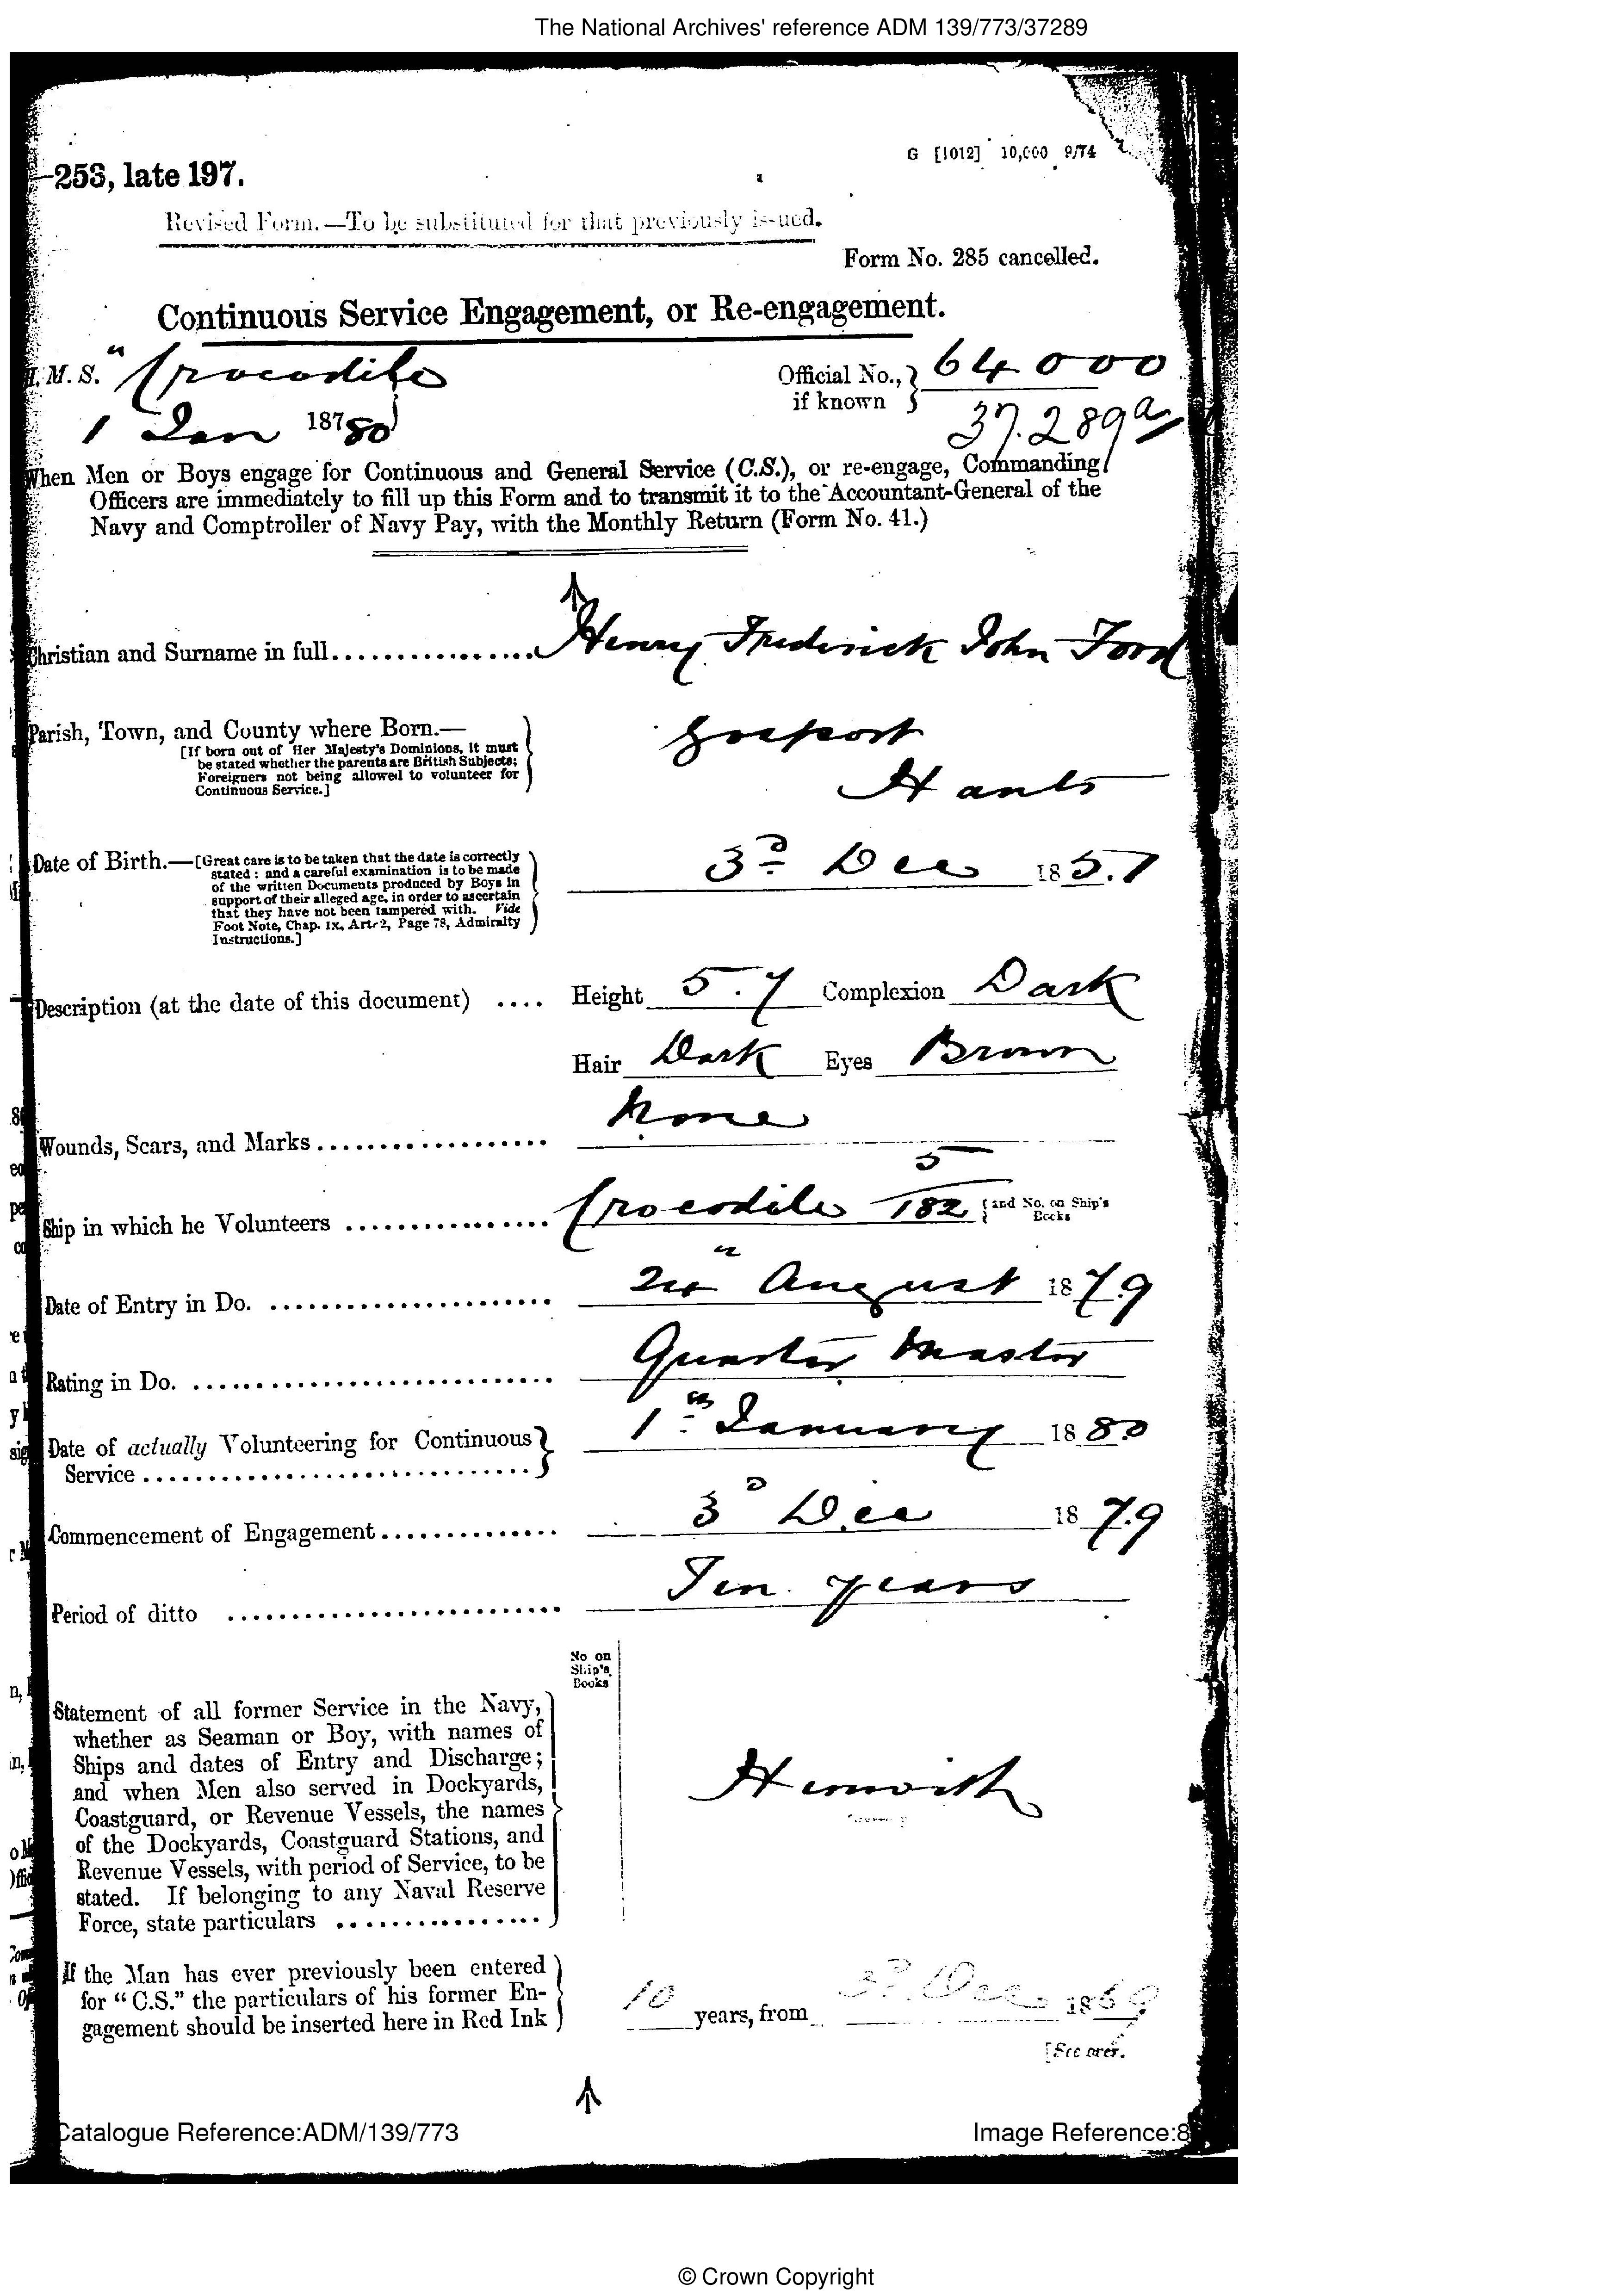 The National Archives' reference ADM 139/773/37289
G [1012] 10,000 9/74
—253, late 197.
Revised Form.—To be substituted for that previously issued.
Form No. 285 cancelled.
Continuous Service Engagement, or Re-engagement.
H.M.S. "Crocodile"
Official No., if known } 64000
1 Jan 18780
37.289a
When Men or Boys engage for Continuous and General Service (C.S.), or re-engage, Commanding
Officers are immediately to fill up this Form and to transmit it to the Accountant-General of the
Navy and Comptroller of Navy Pay, with the Monthly Return (Form No. 41.)
Christian and Surname in full................ Henry Frederick John Ford
Parish, Town, and County where Born.— Gosport
[If born out of Her Majesty's Dominions, it must
be stated whether the parents are British Subjects;
Foreigners not being allowed to volunteer for
Continuous Service.]
Hants
Date of Birth.—[Great care is to be taken that the date is correctly
stated: and a careful examination is to be made
of the written Documents produced by Boys in
support of their alleged age, in order to ascertain
that they have not been tampered with. Vide
Foot Note, Chap. IX, Art. 2, Page 78, Admiralty
Instructions.]
3d Dec 1851
Description (at the date of this document) .... Height 5.7 Complexion Dark
Hair Dark Eyes Brown
Wounds, Scars, and Marks.................. None
Ship in which he Volunteers ................ Crocodile 5/182 {and No. on Ship's Books
Date of Entry in Do. ...................... 24" August 1879
Rating in Do. ............................ Quarter Master
Date of actually Volunteering for Continuous
Service .............................. 1st January 1880
Commencement of Engagement.............. 3d Dec 1879
Period of ditto .......................... Ten years
No on
Ship's
Books
Statement of all former Service in the Navy,
whether as Seaman or Boy, with names of
Ships and dates of Entry and Discharge;
and when Men also served in Dockyards,
Coastguard, or Revenue Vessels, the names
of the Dockyards, Coastguard Stations, and
Revenue Vessels, with period of Service, to be
stated. If belonging to any Naval Reserve
Force, state particulars ................
Herewith
If the Man has ever previously been entered
for "C.S." the particulars of his former En-
gagement should be inserted here in Red Ink
10 years, from 3d Dec 1869
[See over.
Catalogue Reference:ADM/139/773
Image Reference:8
© Crown Copyright